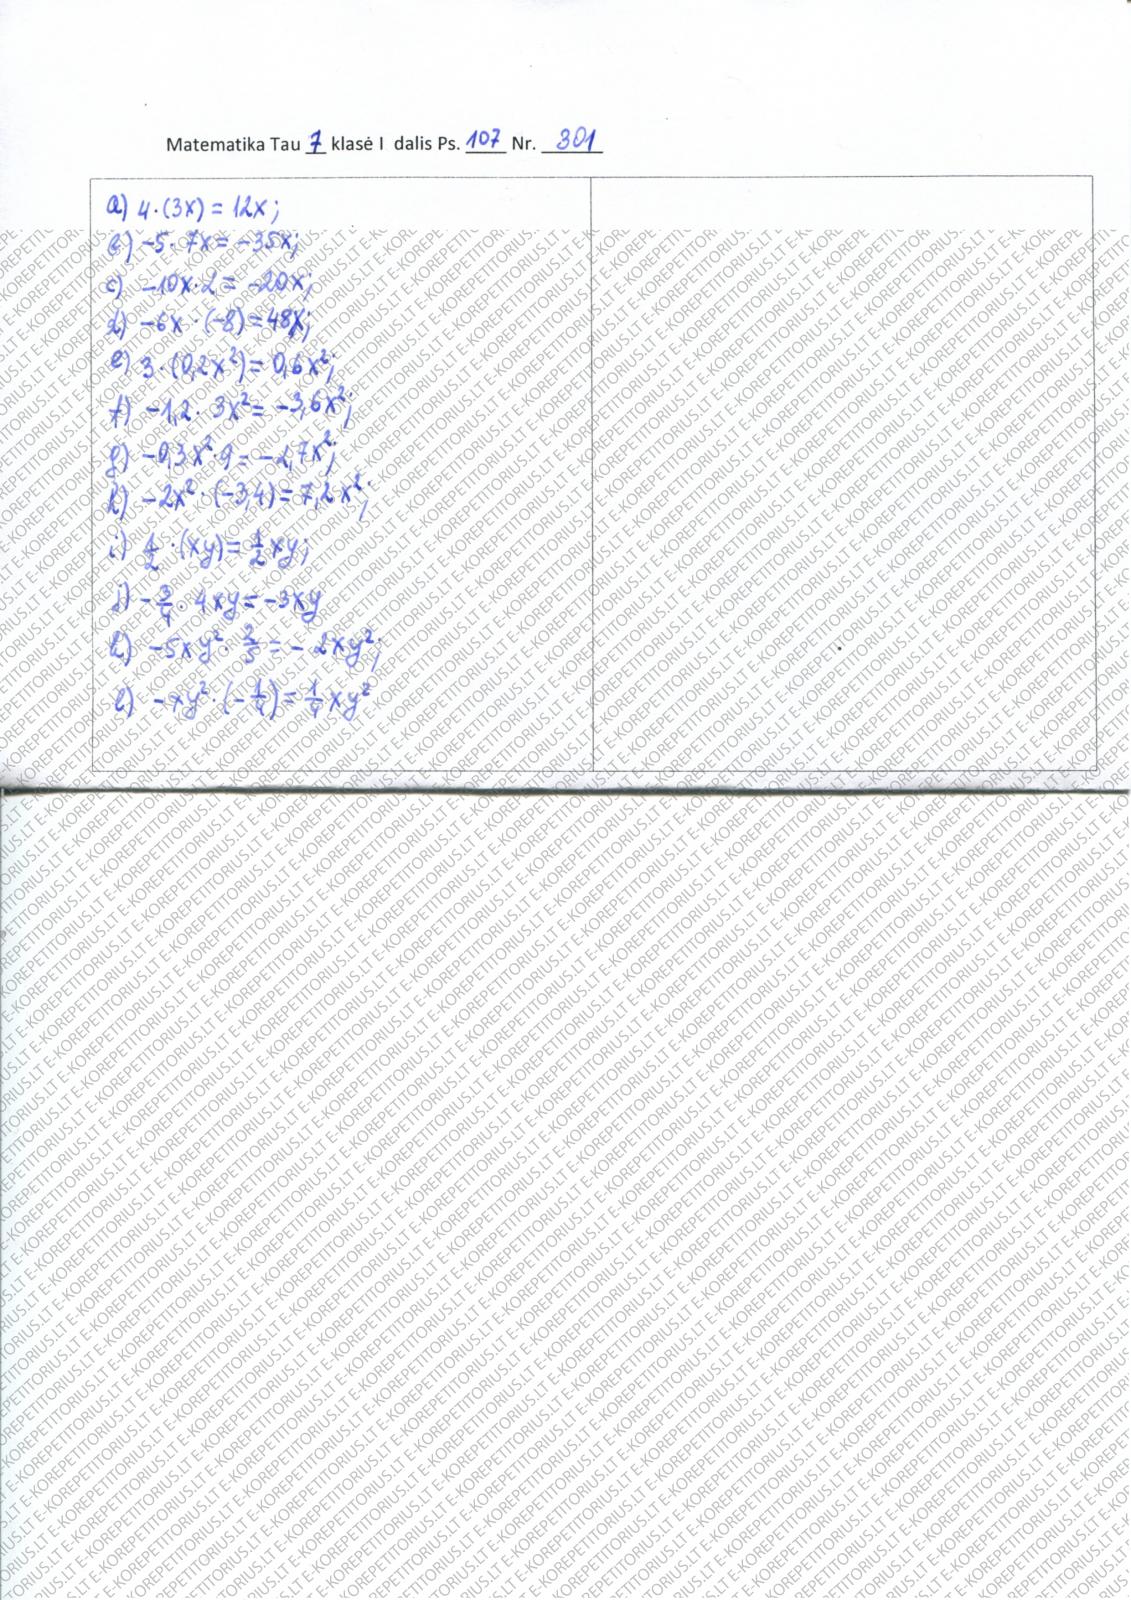 Matematika Tau 7 klasė I dalis Ps. 107 Nr. 301
a) 4·(3x) = 12x;
b) -5·7x = -35x;
c) -10x·2 = -20x;
d) -6x·(-8) = 48x;
e) 3·(0,2x²) = 0,6x²;
f) -1,2·3x² = -3,6x²;
g) -0,3x²·9 = -2,7x²;
h) -2x²·(-3,4) = 7,2x²;
i) 1/2·(xy) = 1/2xy;
j) -3/4·4xy = -3xy
k) -5xy²·2/5 = -2xy²;
l) -xy²·(-1/4) = 1/4xy²
E-KOREPETITORIUS.LT